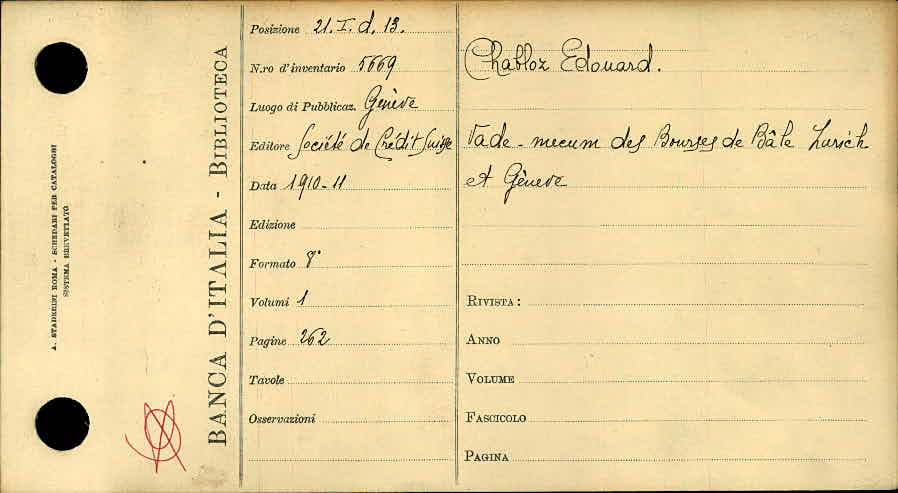 A. STADERINI ROMA - SCHEDARI PER CATALOGHI
SISTEMA BREVETTATO
BANCA D'ITALIA - BIBLIOTECA
Posizione 21. I. d. 13.
N.ro d'inventario 5669
Luogo di Pubblicaz. Genève
Editore Société de Crédit Suisse
Data 1910-11
Edizione
Formato 8°
Volumi 1
Pagine 262
Tavole
Osservazioni
Chabloz Edouard.
Vade-mecum des Bourses de Bâle Zurich
et Gèneve
RIVISTA:
ANNO
VOLUME
FASCICOLO
PAGINA